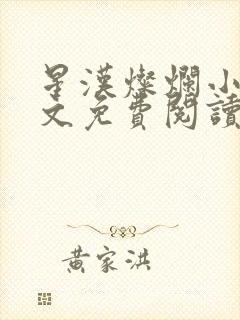 星漢燦爛小
文免費閱讀
黃家洪